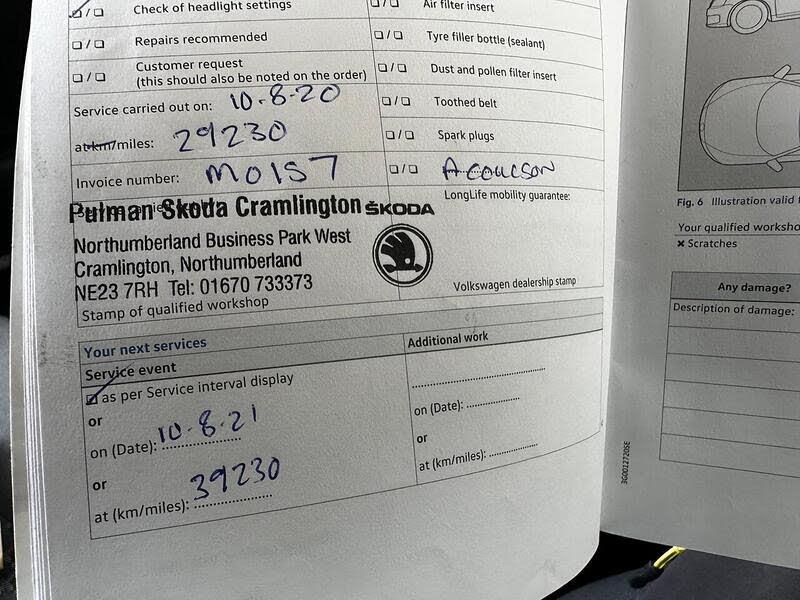 Check of headlight settings
Repairs recommended
Customer request
(this should also be noted on the order)
Service carried out on: 10-8-20
at km/miles: 29230
Invoice number: M0157
Air filter insert
Tyre filler bottle (sealant)
Dust and pollen filter insert
Toothed belt
Spark plugs
A COULSON
LongLife mobility guarantee:
Pulman Skoda Cramlington ŠKODA
Northumberland Business Park West
Cramlington, Northumberland
NE23 7RH Tel: 01670 733373
Stamp of qualified workshop
Volkswagen dealership stamp
Your next services
Service event
as per Service interval display
or
on (Date): 10-8-21
or
at (km/miles): 39230
Additional work
on (Date):
or
at (km/miles):
Fig. 6 Illustration valid f
Your qualified worksho
× Scratches
Any damage?
Description of damage:
3G0012720SE